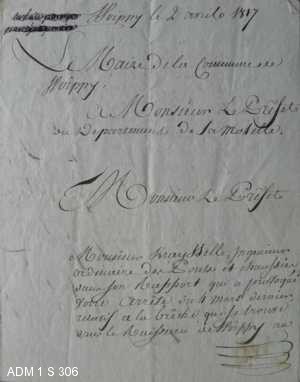 Woippy le 2 avril 1817
Le Maire de la Commune de
Woippy.
A Monsieur Le Préfet
du Département de la Moselle.
Monsieur Le Préfet
Monsieur Ingénieur
ordinaire des Ponts et chaussées
dans son Rapport qui a
votre arrêté du 4 mars dernier
relatif à la qui se trouve
sur le Ruisseau de Woippy au
ADM 1 S 306